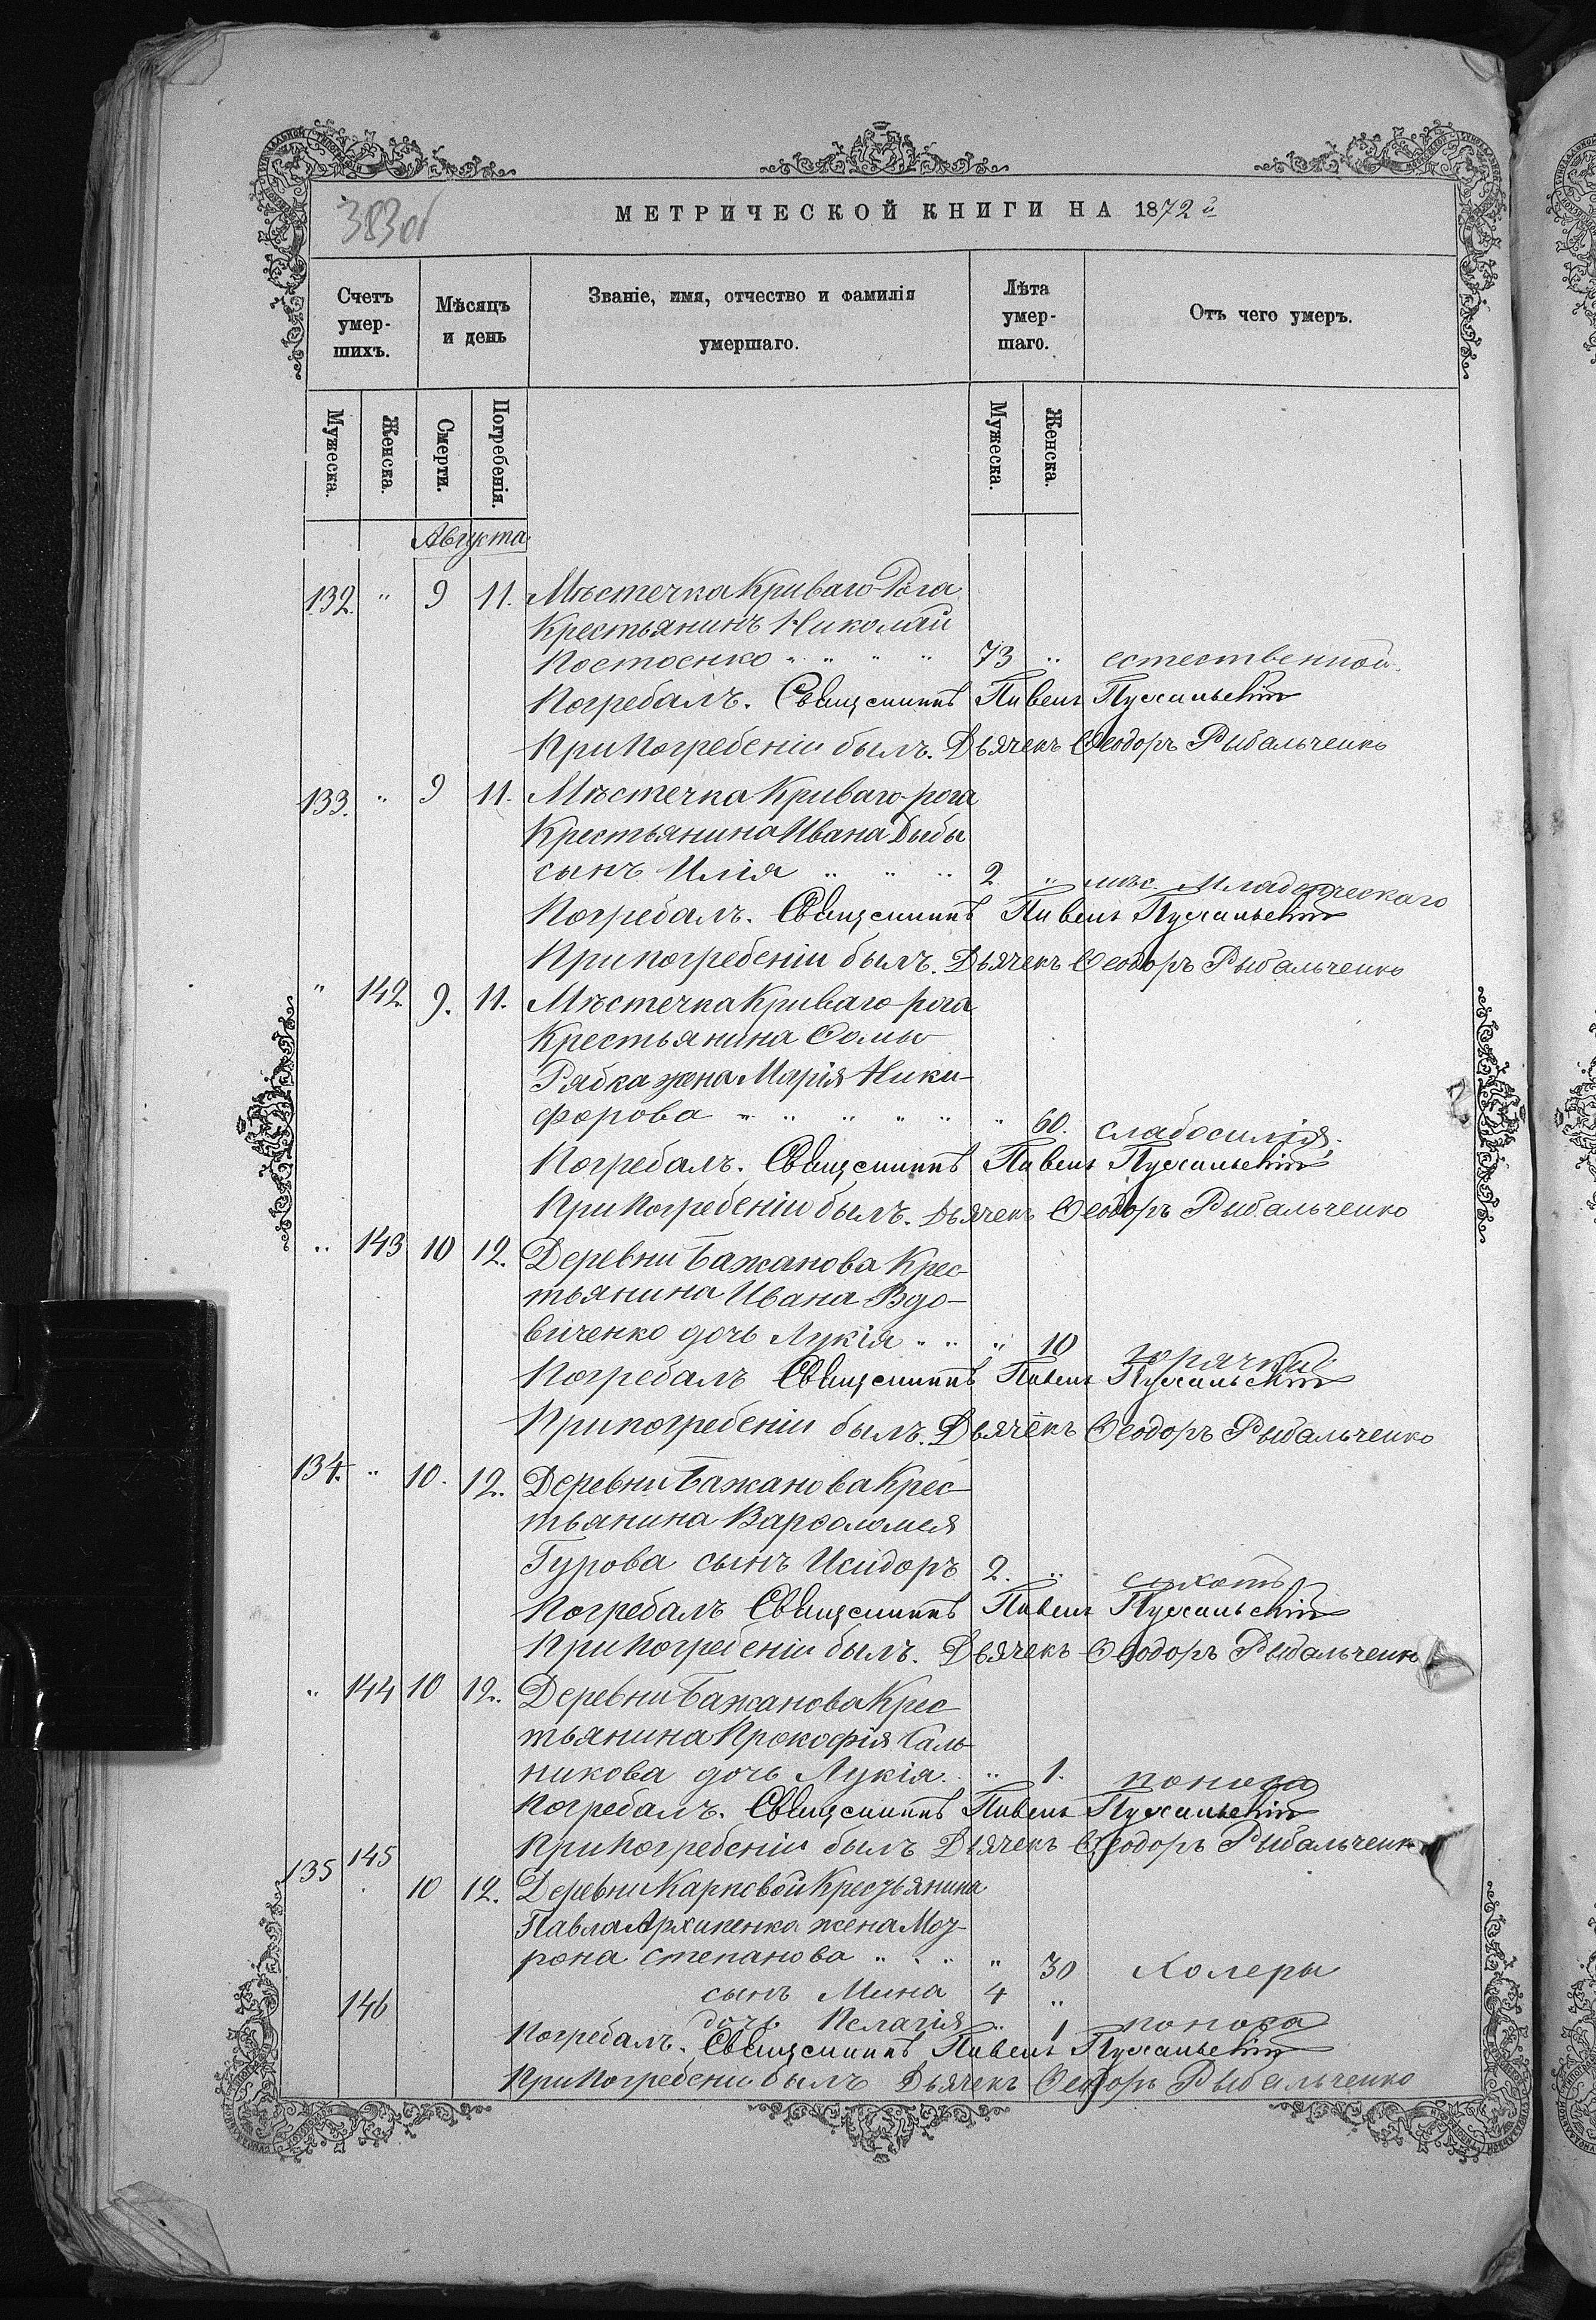 383 об
МЕТРИЧЕСКОЙ КНИГИ НА 1872й
Счетъ умер-шихъ. Мѣсяцъ и день Званіе, имя, отчество и фамилія умершаго. Лѣта умер-шаго. Отъ чего умеръ.
Мужеска. Женска. Смерти. Погребенія. Мужеска. Женска.
Августа
132. " 9 11. Мѣстечка Криваго-Рога
Крестьянинъ Николай
Костоенко " " " " 73 " естественной.
Погребалъ. Священникъ Павелъ
При погребеніи былъ. Дьячекъ Ѳеодоръ Рыбальченко
133. " 9 11. Мѣстечка Криваго-рога
Крестьянина Ивана Дыбы
сынъ Илія " " " 2 " мѣс. Младенческаго
Погребалъ. Священникъ Павелъ
При погребеніи былъ. Дьячекъ Ѳеодоръ Рыбальченко
" 142 9. 11. Мѣстечка Криваго-рога
Крестьянина Ѳомы
Рябка жена Марія Ники-
форова " " " " " " 60. слабосилія.
Погребалъ. Священникъ Павелъ
При погребеніи былъ. Дьячекъ Ѳеодоръ Рыбальченко
" 143 10 12. Деревни Бажанова Крес-
тьянина Ивана Вдо-
виченко дочь Лукія " " " 10 горячки
Погребалъ Священникъ Павелъ
При погребеніи былъ. Дьячекъ Ѳеодоръ Рыбальченко
134. " 10. 12. Деревни Бажанова Крес-
тьянина Варѳоломея
Гурова сынъ Исидоръ 2. " сухоть
Погребалъ Священникъ Павелъ
При погребеніи былъ. Дьячекъ Ѳеодоръ Рыбальченко
" 144 10 12. Деревни Бажанова Крес
тьянина Прокофія Саль-
никова дочь Лукія. " 1. поноса
Погребалъ. Священникъ Павелъ
При погребеніи былъ Дьячекъ Ѳеодоръ Рыбальченко
135 145 10 12. Деревни Карповой Крестьянина
Павла Архипенко жена Мот-
рона Степанова " " " " 30 Холеры
сынъ Мина 4 "
146 дочь Пелагія " 1 поноса
Погребалъ. Священникъ Павелъ
При погребеніи былъ Дьячекъ Ѳеодоръ Рыбальченко